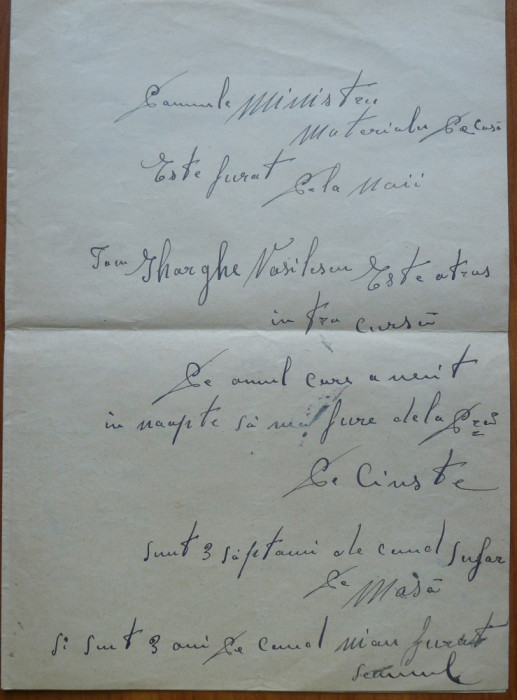 Domnule Ministru
Materialu De casă
Este furat
De la Maii
Ghorghe Vasilescu Este atras
in tro cursă
De omul care a venit
in noapte să mă fure dela
De Cinste
sunt 3 săptami de cand sufar
De Masă
si sunt 3 ani De cand miau furat